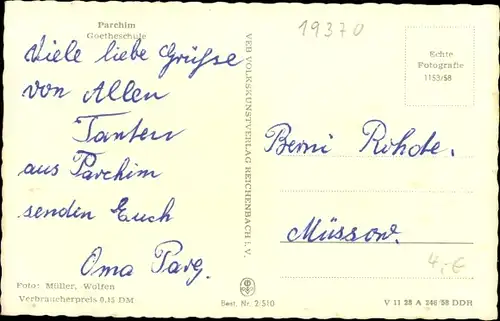 Parchim
Goetheschule
Viele liebe Grüße
von Allen
Tanten
aus Parchim
senden Euch
Oma Parg.
Foto: Müller, Wolfen
Verbraucherpreis 0,15 DM
VEB VOLKSKUNSTVERLAG REICHENBACH i. V.
Best. Nr. 2/510
19370
Echte
Fotografie
1153/58
Berni Rohde.
Müssow.
4,-€
V 11 28 A 246/58 DDR